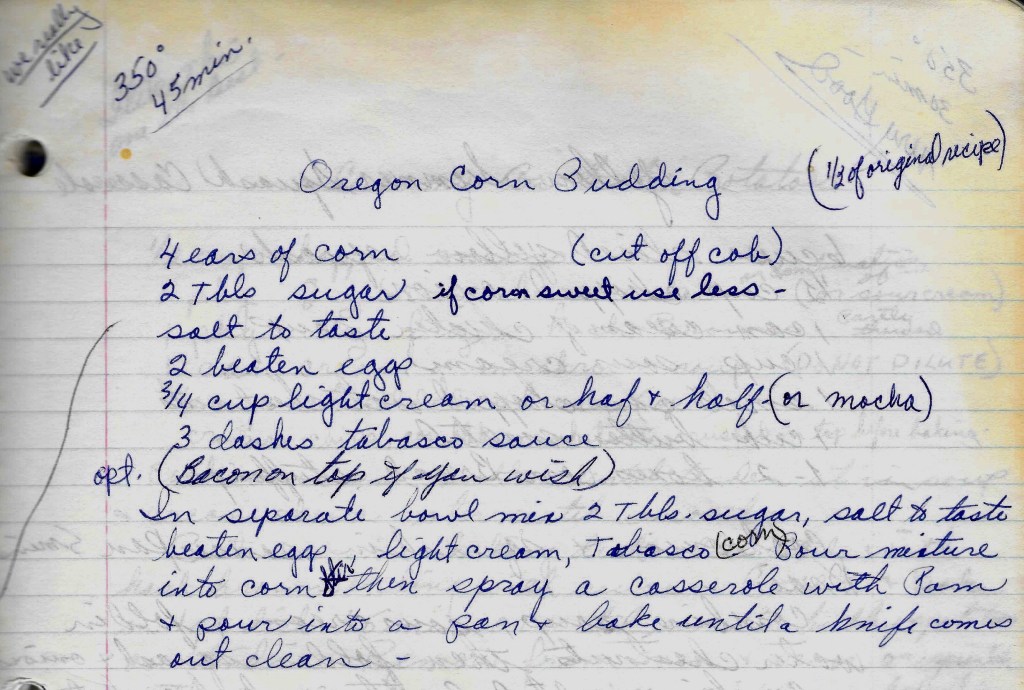 we really
like
350°
45 min.
Oregon Corn Pudding (1/3 of original recipe)
4 ears of corn (cut off cob)
2 Tbls sugar if corn sweet use less -
salt to taste
2 beaten eggs
3/4 cup light cream or haf & half (or mocha)
3 dashes tabasco sauce
opt. (Bacon on top if you wish)
In separate bowl mix 2 Tbls. sugar, salt to taste
beaten eggs, light cream, Tabasco Pour mixture
into corn then spray a casserole with Pam
& pour into a pan & bake until a knife comes
out clean -